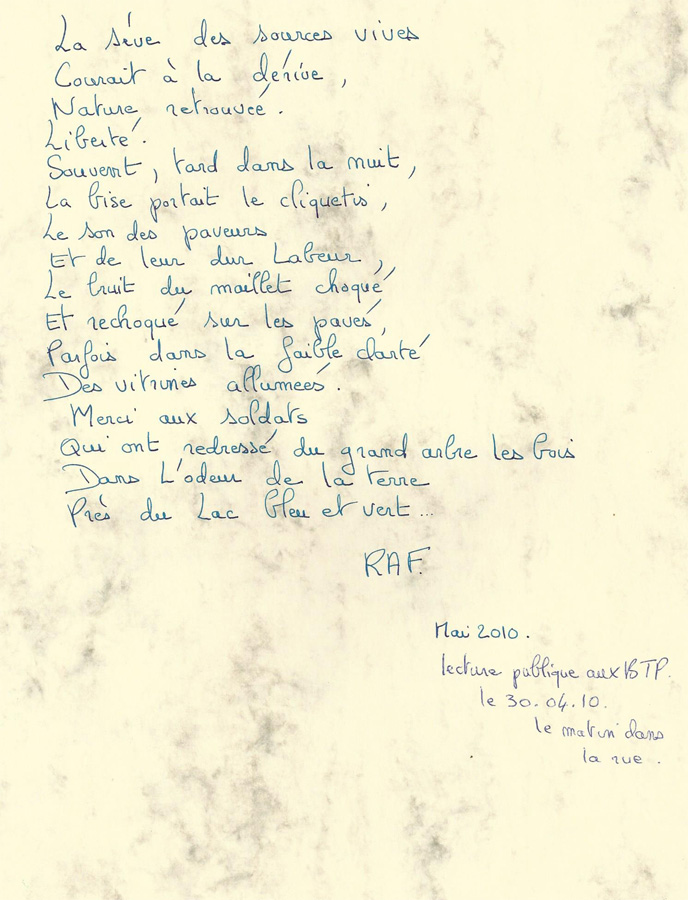 La sève des sources vives
Courait à la dérive,
Nature retrouvée.
Liberté.
Souvent, tard dans la nuit,
La bise portait le cliquetis,
Le son des paveurs
Et de leur dur Labeur,
Le bruit du maillet choqué
Et rechoqué sur les pavés,
Parfois dans la faible clarté
Des vitrines allumées.
Merci aux soldats
Qui ont redressé du grand arbre les bois
Dans L'odeur de la terre
Près du Lac bleu et vert...
RAF.
Mai 2010.
lecture publique aux BTP.
le 30.04.10.
le matin dans
la rue.